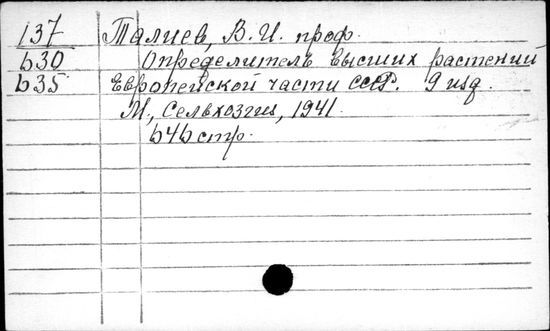 137 Талиев, В. И. проф.
630 Определитель высших растений
635 Европейской части СССР. 9 изд.
М., Сельхозгиз, 1941.
646 стр.